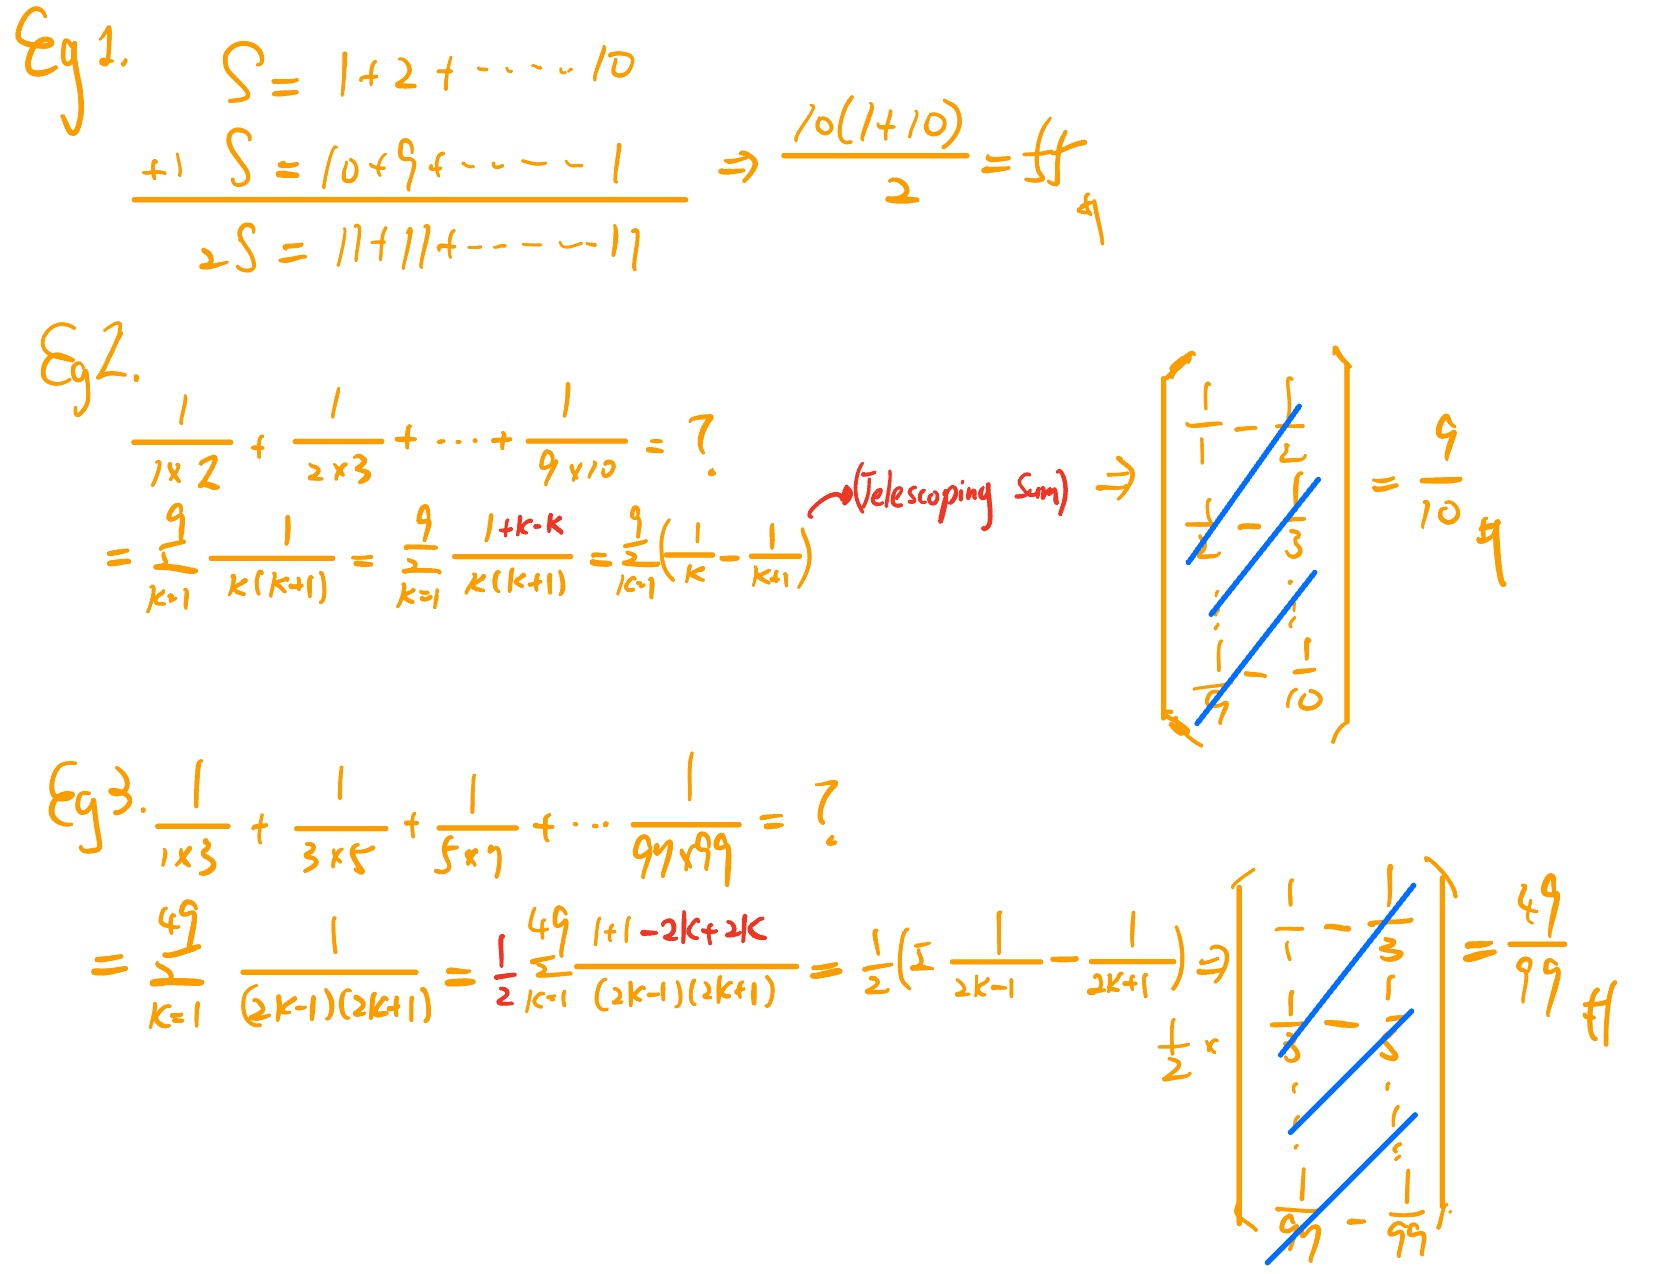 Eg 1.
S = 1+2+ ······ 10
+) S = 10+9+ ······ 1
2S = 11+11+ ······ 11
⇒ 10(1+10)/2 = 55
Eg 2.
1/(1×2) + 1/(2×3) + ··· + 1/(9×10) = ?
= Σ_{k=1}^{9} 1/(k(k+1)) = Σ_{k=1}^{9} (1+k-k)/(k(k+1)) = Σ_{k=1}^{9} (1/k - 1/(k+1))
(Telescoping Sum)
⇒
1/1 - 1/2
1/2 - 1/3
⋮ ⋮
1/9 - 1/10
= 9/10
Eg 3. 1/(1×3) + 1/(3×5) + 1/(5×7) + ··· 1/(97×99) = ?
= Σ_{k=1}^{49} 1/((2k-1)(2k+1)) = 1/2 Σ_{k=1}^{49} (1+1-2k+2k)/((2k-1)(2k+1)) = 1/2 (Σ 1/(2k-1) - 1/(2k+1)) ⇒
1/2 ×
1/1 - 1/3
1/3 - 1/5
⋮ ⋮
1/97 - 1/99
= 49/99